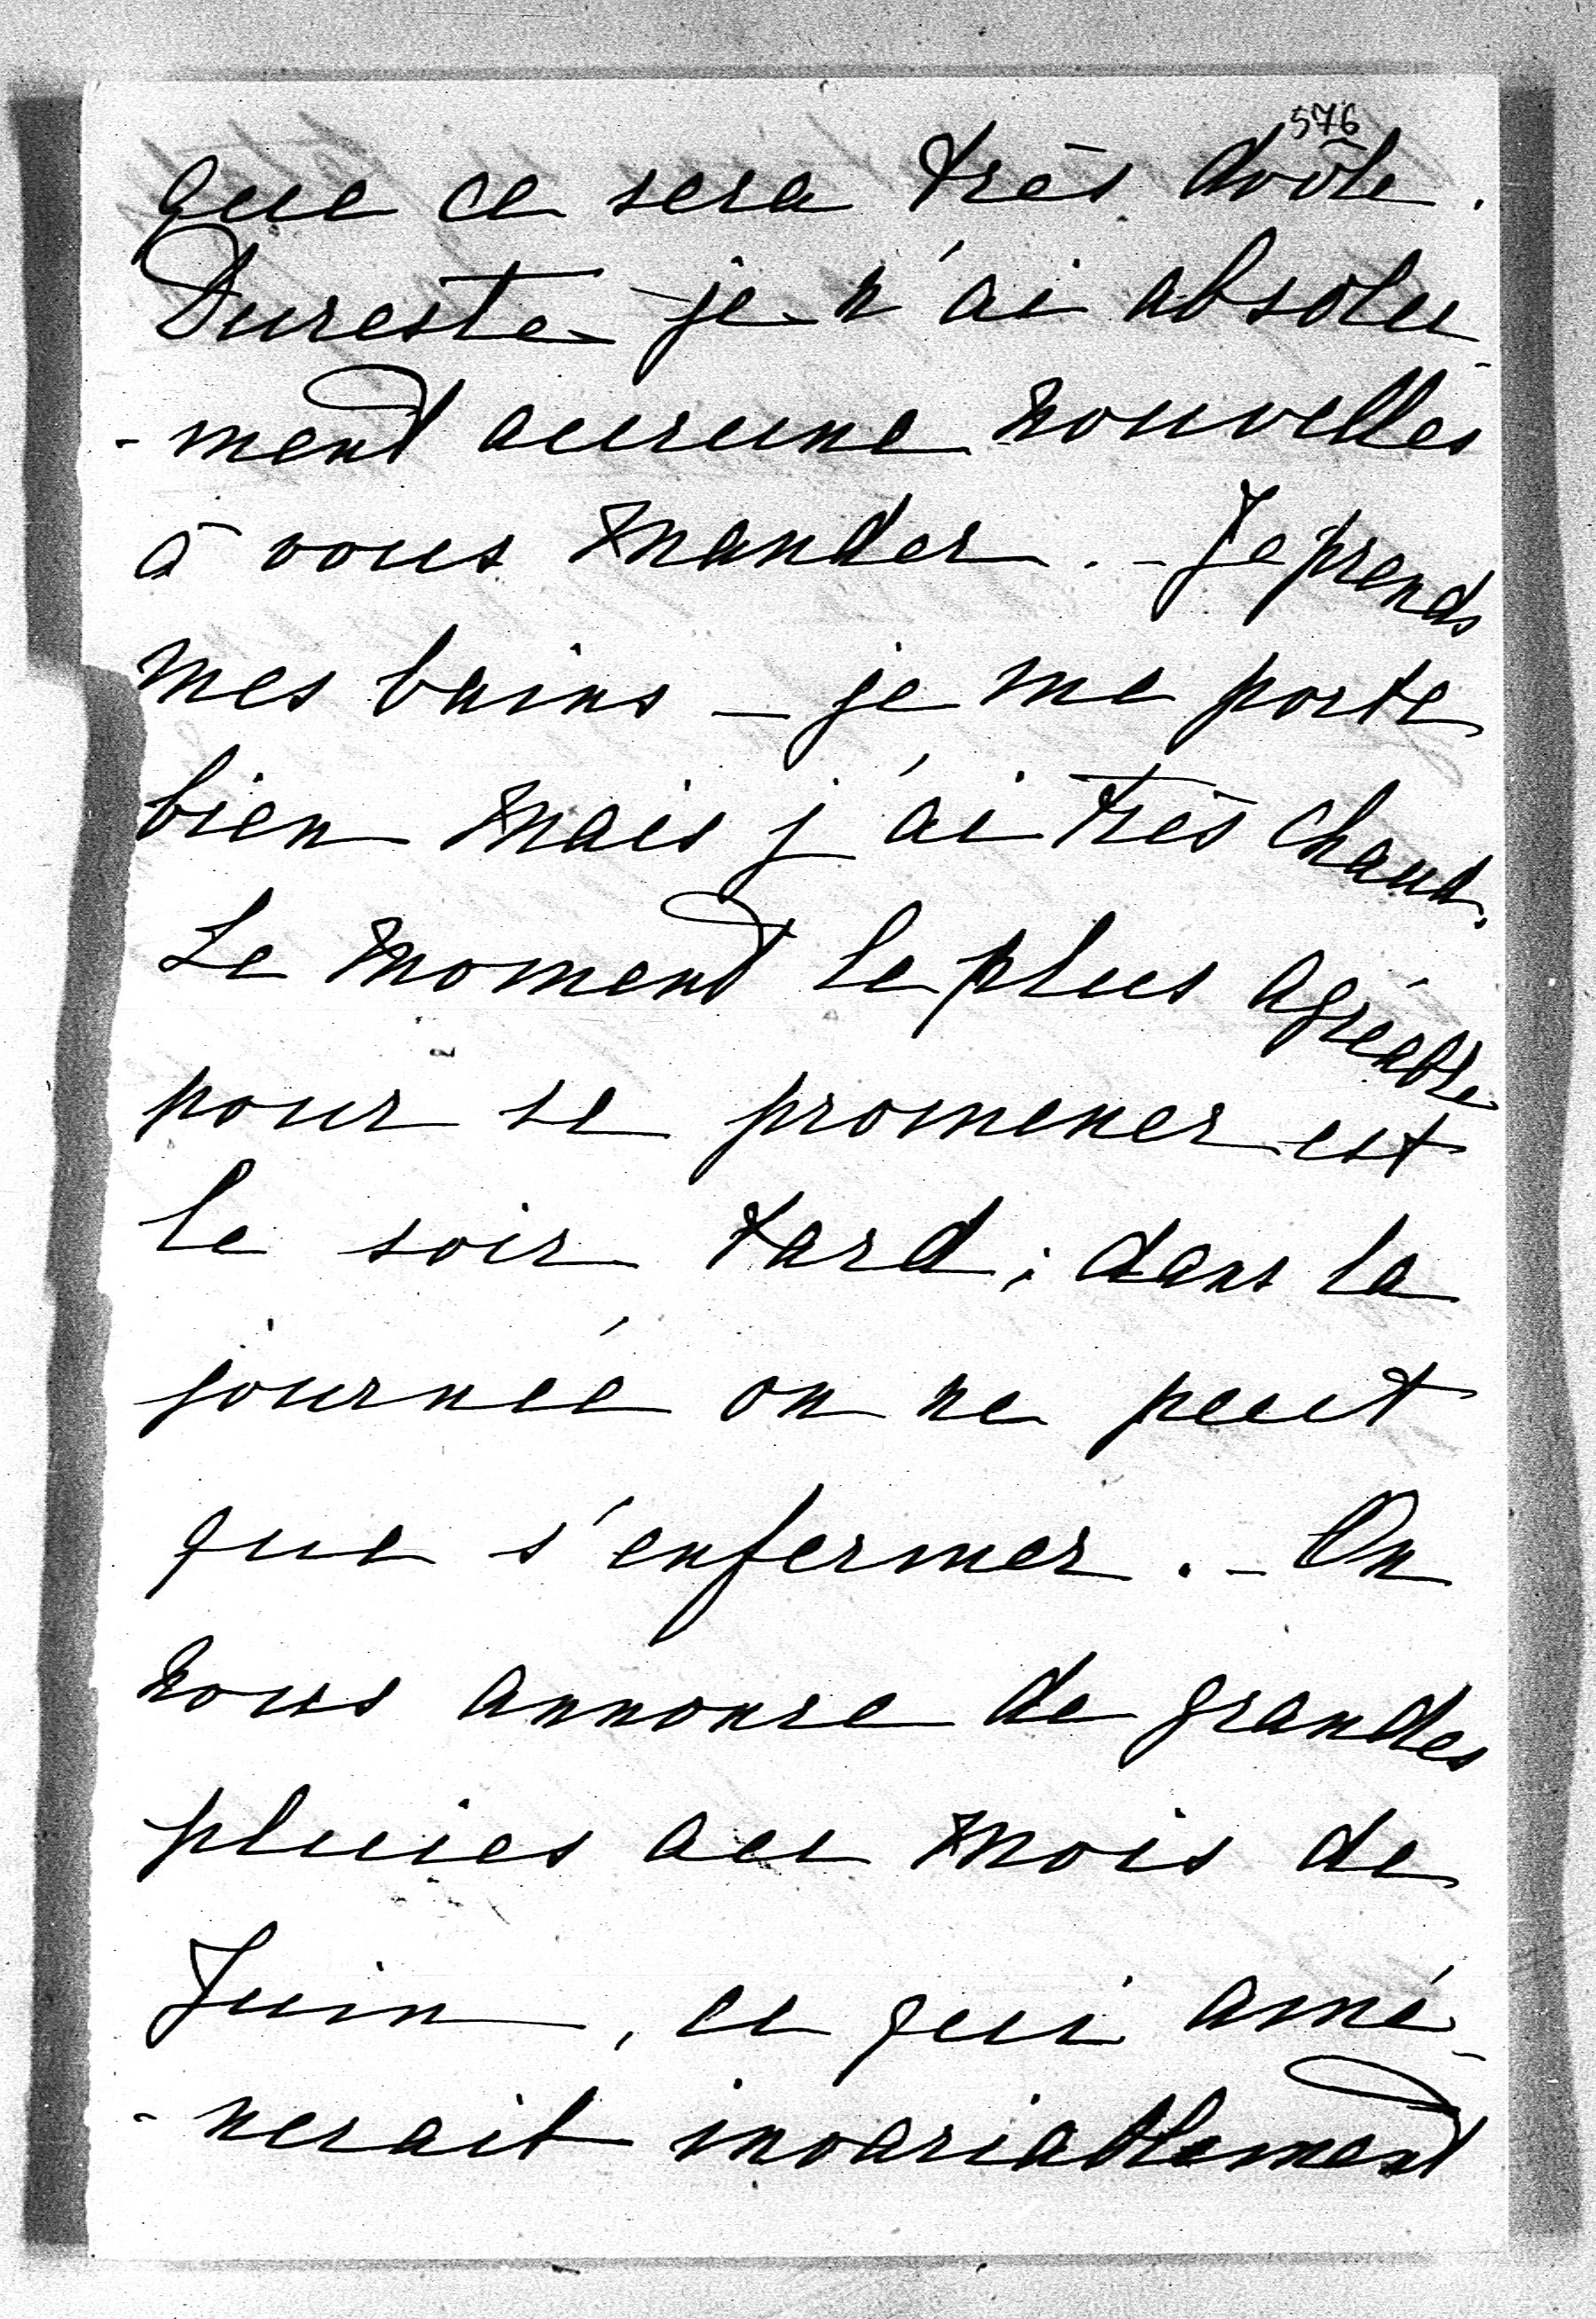 576
que ce sera très drôle.
Dureste je n'ai absolu-
-ment aucune nouvelles
à vous mander. - Je prends
mes bains - je me porte
bien mais j'ai très chaud.
Le moment le plus agréable
pour se promener est
le soir tard; dans la
journée on ne peut
que s'enfermer. - On
nous annonce de grandes
pluies au mois de
Juin, ce qui amé-
-nerait invariablement